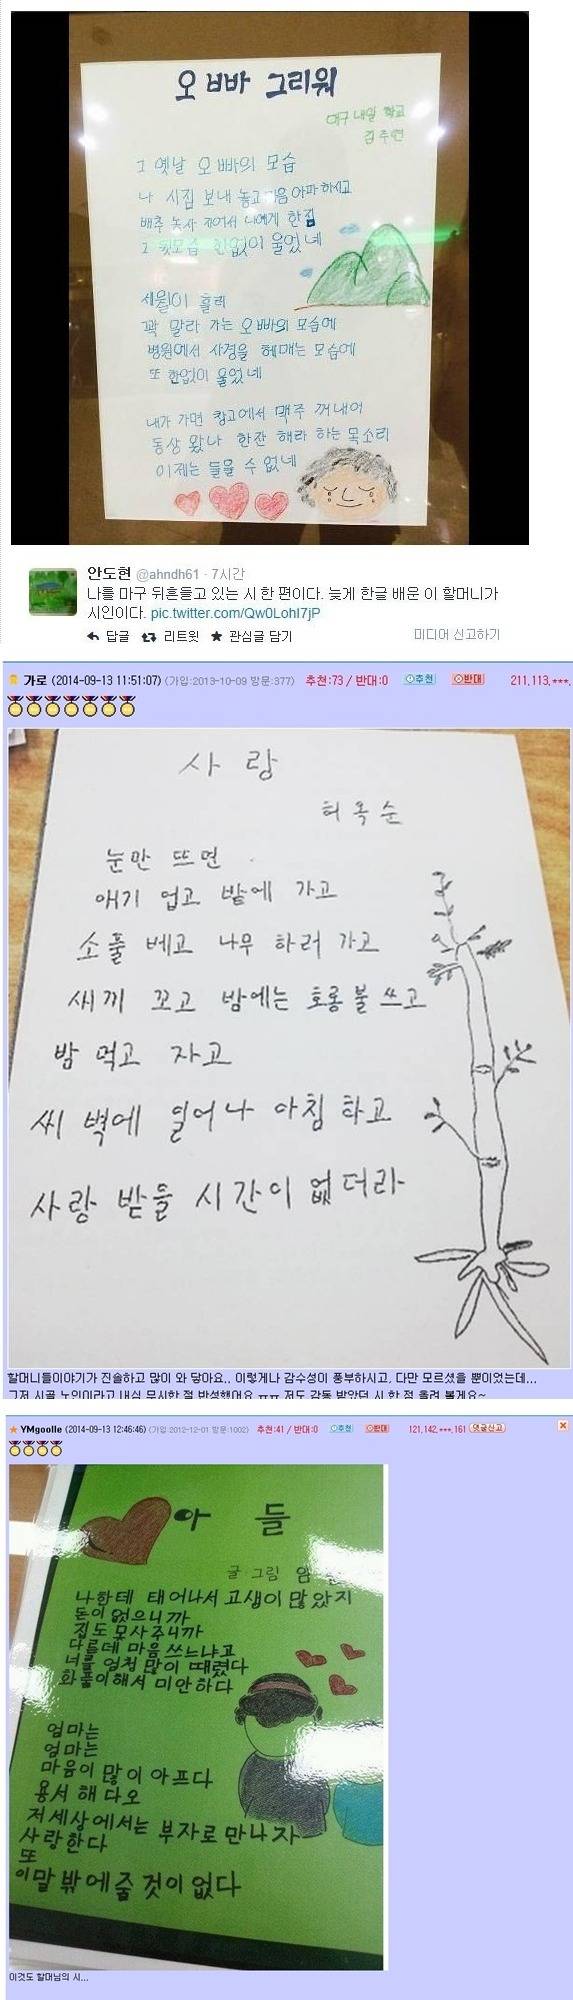 오빠 그리워
대구 내일 학교
김주연
그 옛날 오빠의 모습
나 시집 보내 놓고 마음 아파 하시고
배추 농사 지어서 나에게 한짐
그 뒷모습 한없이 울었네
세월이 흘러
꽉 말라 가는 오빠의 모습에
병원에서 사경을 헤매는 모습에
또 한없이 울었네
내가 가면 창고에서 맥주 꺼내어
동상 왔나 한잔 해라 하는 목소리
이제는 들을 수 없네
안도현 @ahndh61 · 7시간
나를 마구 뒤흔들고 있는 시 한 편이다. 늦게 한글 배운 이 할머니가
시인이다. pic.twitter.com/Qw0LohI7jP
답글 리트윗 관심글 담기 미디어 신고하기
가로 (2014-09-13 11:51:07) (가입:2013-10-09 방문:377) 추천:73 / 반대:0 추천 반대 211.113.***.
사랑
허옥순
눈만 뜨면
애기 업고 밭에 가고
소풀 베고 나무 하러 가고
새끼 꼬고 밤에는 호롱불 쓰고
밤 먹고 자고
씨벽에 일어나 아침 하고
사랑 받을 시간이 없더라
할머니들이야기가 진솔하고 많이 와 닿아요.. 이렇게나 감수성이 풍부하시고, 다만 모르셨을 뿐이었는데...
그저 시골 노인이라고 내심 무시한 절 반성했어요 ㅠㅠ 저도 감동 받았던 시 한 점 올려 볼게요~
YMgoolle (2014-09-13 12:46:46) (가입:2012-12-01 방문:1002) 추천:41 / 반대:0 추천 반대 121.142.***.161 댓글신고
아들
글 그림
나한테 태어나서 고생이 많았지
돈이 없으니까
집도 못사주니까
다른데 마음 쓰느냐고
너를 엄청 많이 때렸다
화풀이해서 미안하다
엄마는
엄마는
마음이 많이 아프다
용서 해 다오
저 세상에서는 부자로 만나자
사랑한다
또
이말 밖에 줄 것이 없다
이것도 할머님의 시...